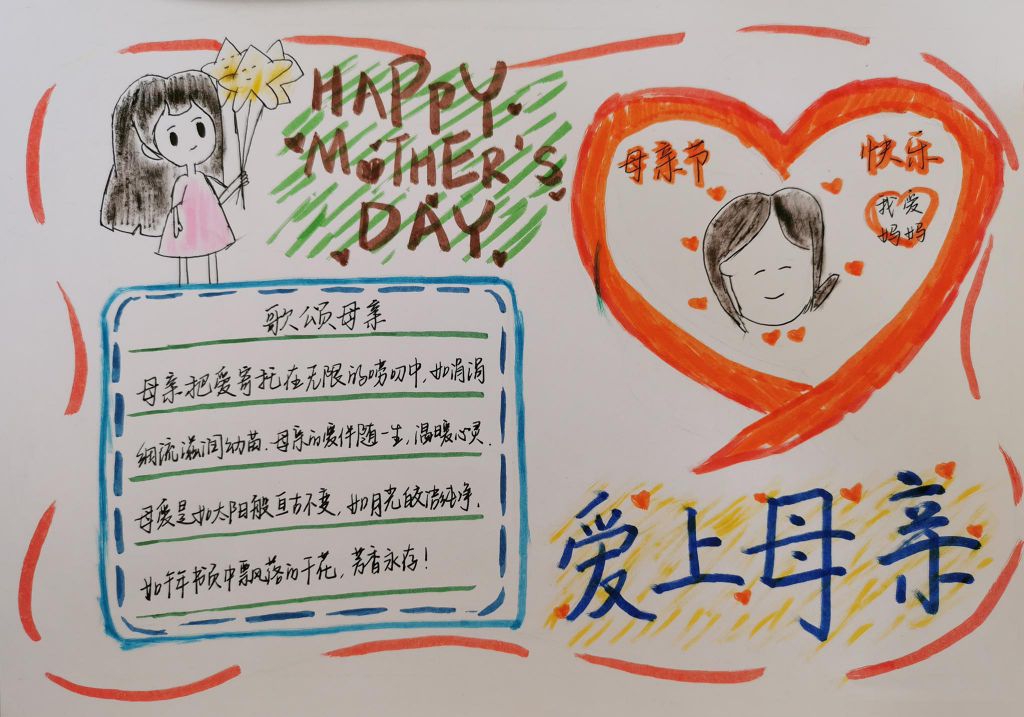 HAPPY
MOTHER'S
DAY
母亲节 快乐
我爱
妈妈
歌颂母亲
母亲把爱寄托在无限的唠叨中,如涓涓
细流滋润幼苗.母亲的爱伴随一生,温暖心灵.
母爱是如太阳般自古不变,如月光皎洁纯净.
如千年书页中飘落的干花,芳香永存!
爱上母亲